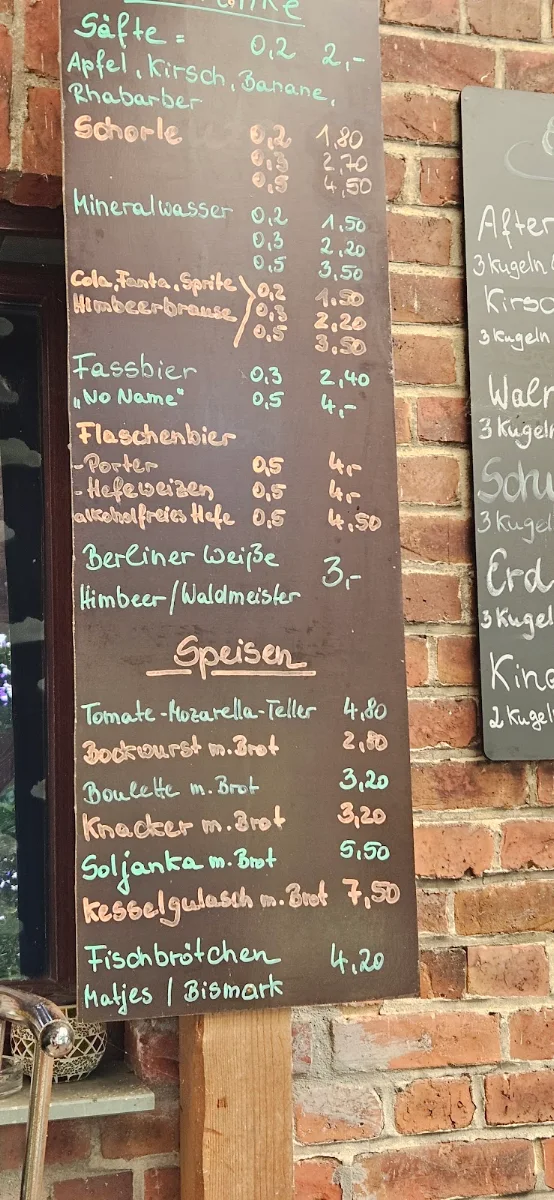 Säfte = 0,2 2,-
Apfel, Kirsch, Banane,
Rhabarber
Schorle 0,2 1,80
0,3 2,70
0,5 4,50
Mineralwasser 0,2 1,50
0,3 2,20
0,5 3,50
Cola, Fanta, Sprite 0,2 1,50
Himbeerbrause 0,3 2,20
0,5 3,50
Fassbier 0,3 2,40
„No Name" 0,5 4,-
Flaschenbier
-Porter 0,5 4,-
-Hefeweizen 0,5 4,-
alkoholfreies Hefe 0,5 4,50
Berliner Weiße 3,-
Himbeer/Waldmeister
Speisen
Tomate-Mozarella-Teller 4,80
Bockwurst m. Brot 2,80
Boulette m. Brot 3,20
Knacker m. Brot 3,20
Soljanka m. Brot 5,50
Kesselgulasch m. Brot 7,50
Fischbrötchen 4,20
Matjes / Bismark
After
3 Kugeln
Kirsc
3 Kugeln
Waln
3 Kugeln
Schw
3 Kugel
Erd
3 Kugel
Kind
2 Kugel